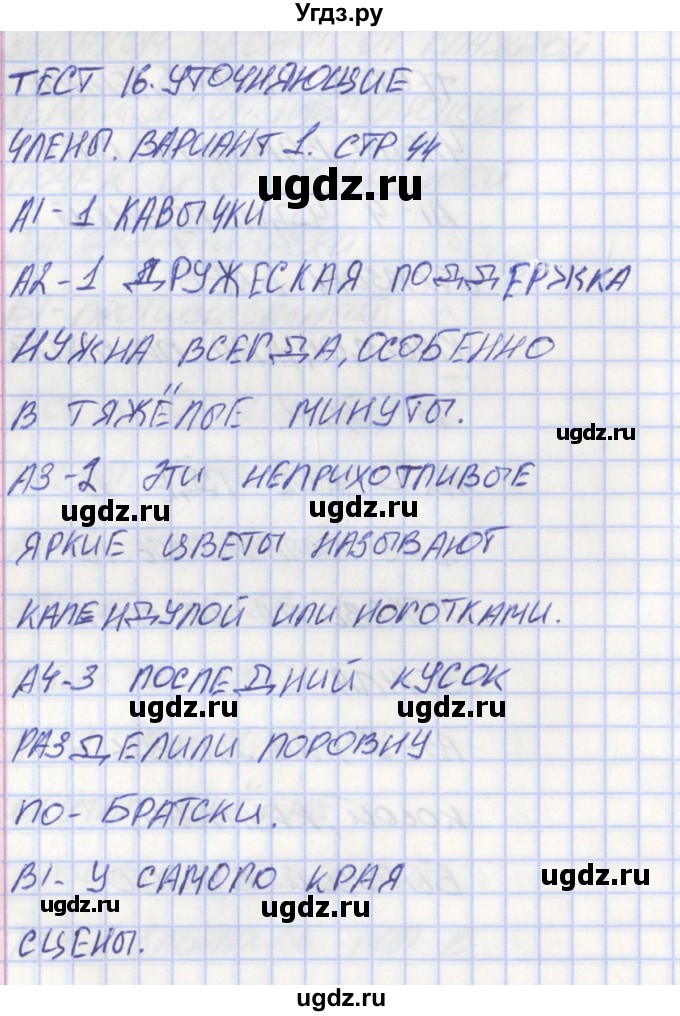 Угдз.ру
ТЕСТ 16. УТОЧНЯЮЩИЕ
ЧЛЕНЫ. ВАРИАНТ 1. СТР 44
ugdz.ru
А1-1 КАВЫЧКИ
А2-1 ДРУЖЕСКАЯ ПОДДЕРЖКА
НУЖНА ВСЕГДА, ОСОБЕННО
В ТЯЖЁЛЫЕ МИНУТЫ.
ugdz.ru
А3-2 ЭТИ НЕПРИХОТЛИВЫЕ
ugdz.ru ugdz.ru
ЯРКИЕ ЦВЕТЫ НАЗЫВАЮТ
КАЛЕНДУЛОЙ ИЛИ НОГОТКАМИ.
А4-3 ПОСЛЕДНИЙ КУСОК
ugdz.ru ugdz.ru
РАЗДЕЛИЛИ ПОРОВНУ
ПО-БРАТСКИ.
В1- У САМОГО КРАЯ
ugdz.ru
ugdz.ru ugdz.ru
СЦЕНЫ.
ugdz.ru